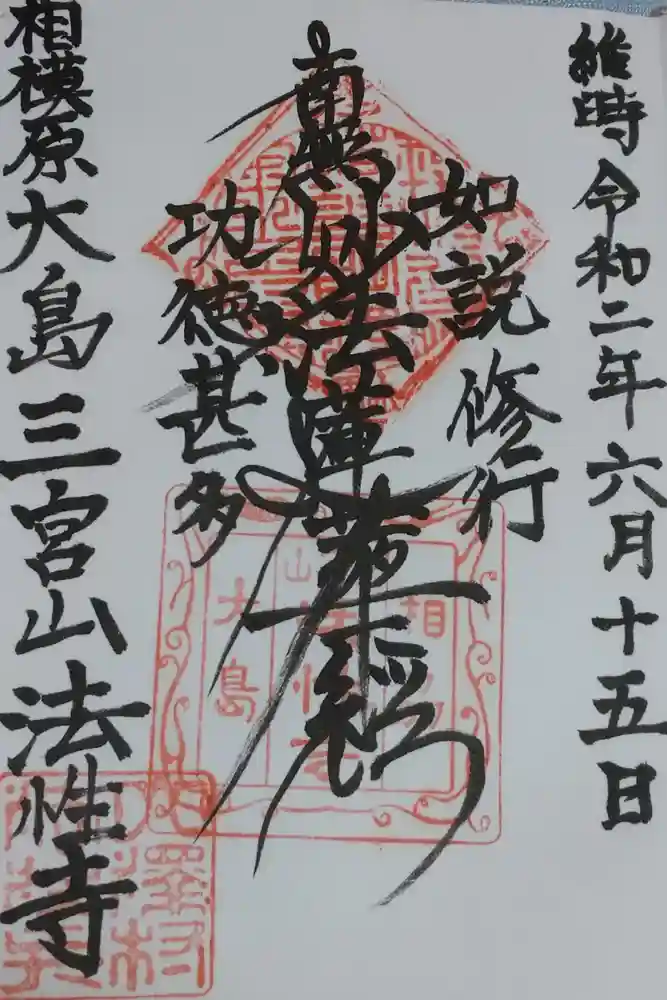 維時令和二年六月十五日
如説修行
南無妙法蓮華経
功徳甚多
相模原大島三宮山法性寺
相
山
大島